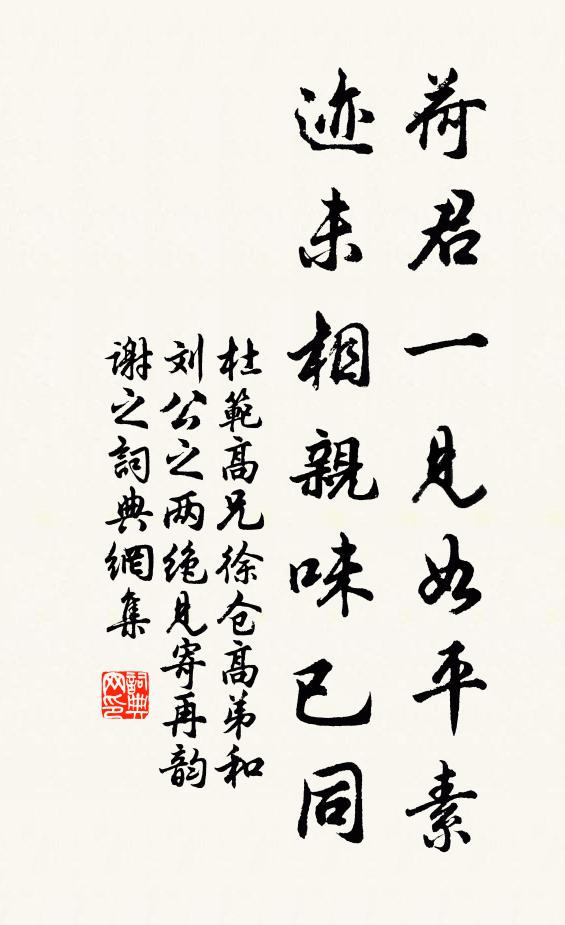 荷君一見如平素
迹未相親味已同
杜範高兄徐仓高弟和
刘公之两绝見寄再韵
谢之詞典網集
詞典网印